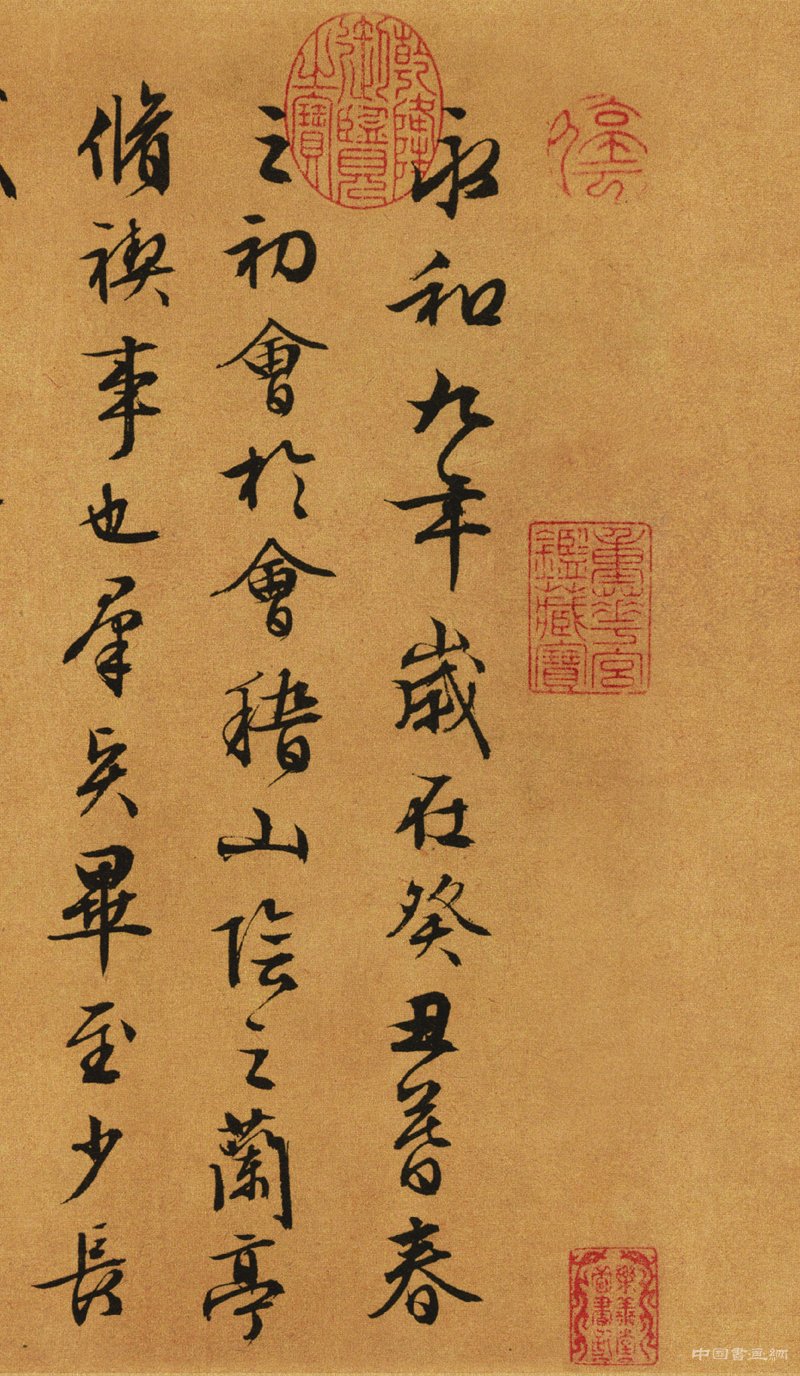 永和九年歲在癸丑暮春
之初會於會稽山陰之蘭亭
脩禊事也羣賢畢至少長
乾隆御覽之寶
重華宮鑑藏寶
樂善堂圖書記
中国書画網